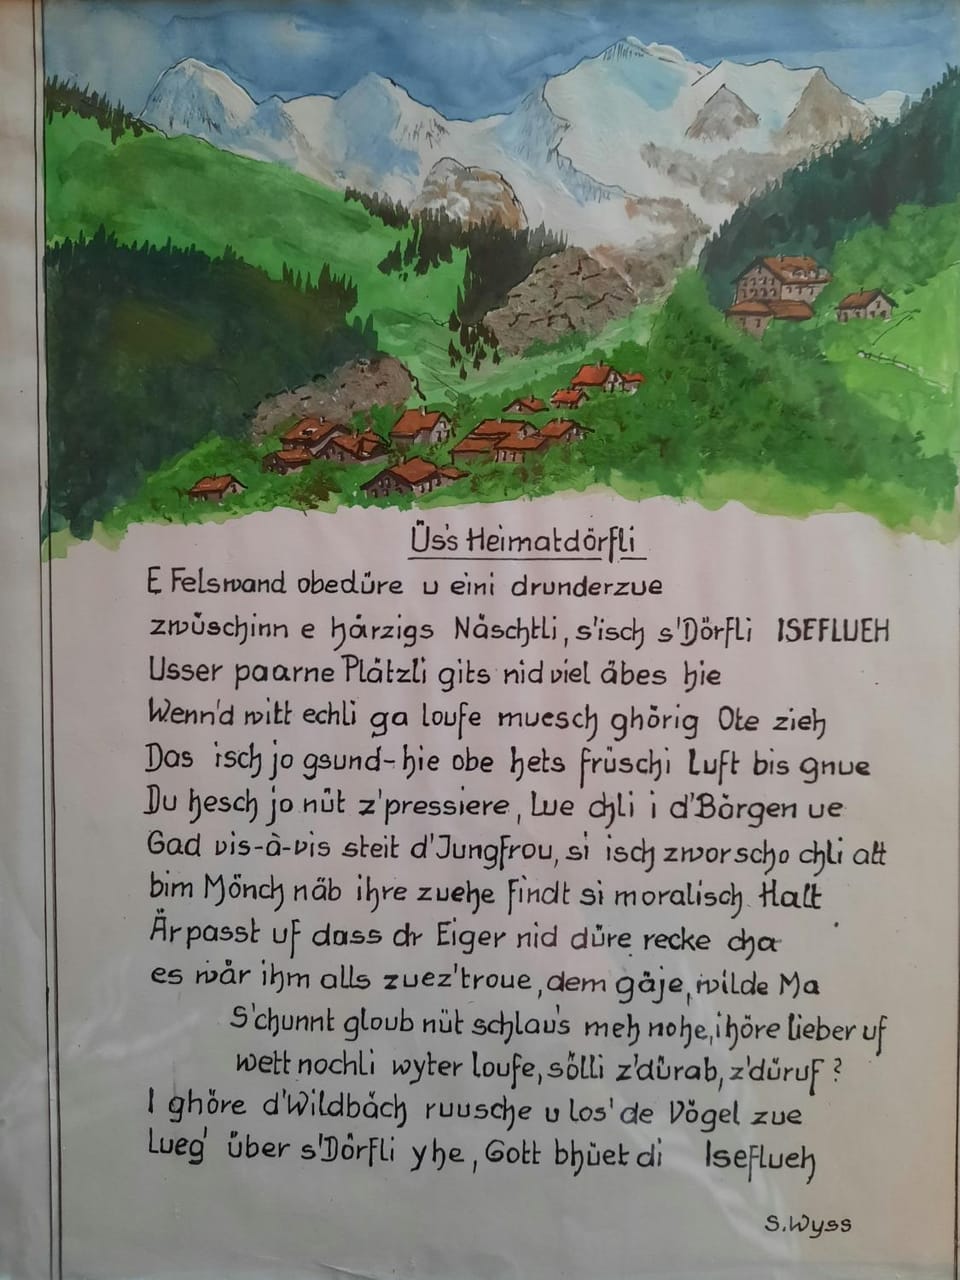 Üs's Heimatdörfli
E Felswand obedüre u eini drunderzue
zwüschinn e härzigs Näschtli, s'isch s'Dörfli ISEFLUEH
Usser paarne Plätzli gits nid viel äbes hie
Wenn'd witt echli ga loufe muesch ghörig Ote zieh
Das isch jo gsund-hie obe hets früschi Luft bis gnue
Du hesch jo nüt z'pressiere, lue chli i d'Bärgen ue
Gad vis-à-vis steit d'Jungfrou, si isch zwor scho chli alt
bim Mönch näb ihre zuehe findt si moralisch Halt
Är passt uf dass dr Eiger nid düre recke cha
es wär ihm alls zuez'troue, dem gäje, wilde Ma
S'chunnt gloub nüt schlau's meh nohe, i höre lieber uf
wett nochli wyter loufe, sölli z'dürab, z'düruf?
I ghöre d'Wildbäch ruusche u los' de Vögel zue
Lueg' über s'Dörfli yhe, Gott bhüet di Iseflueh
S. Wyss